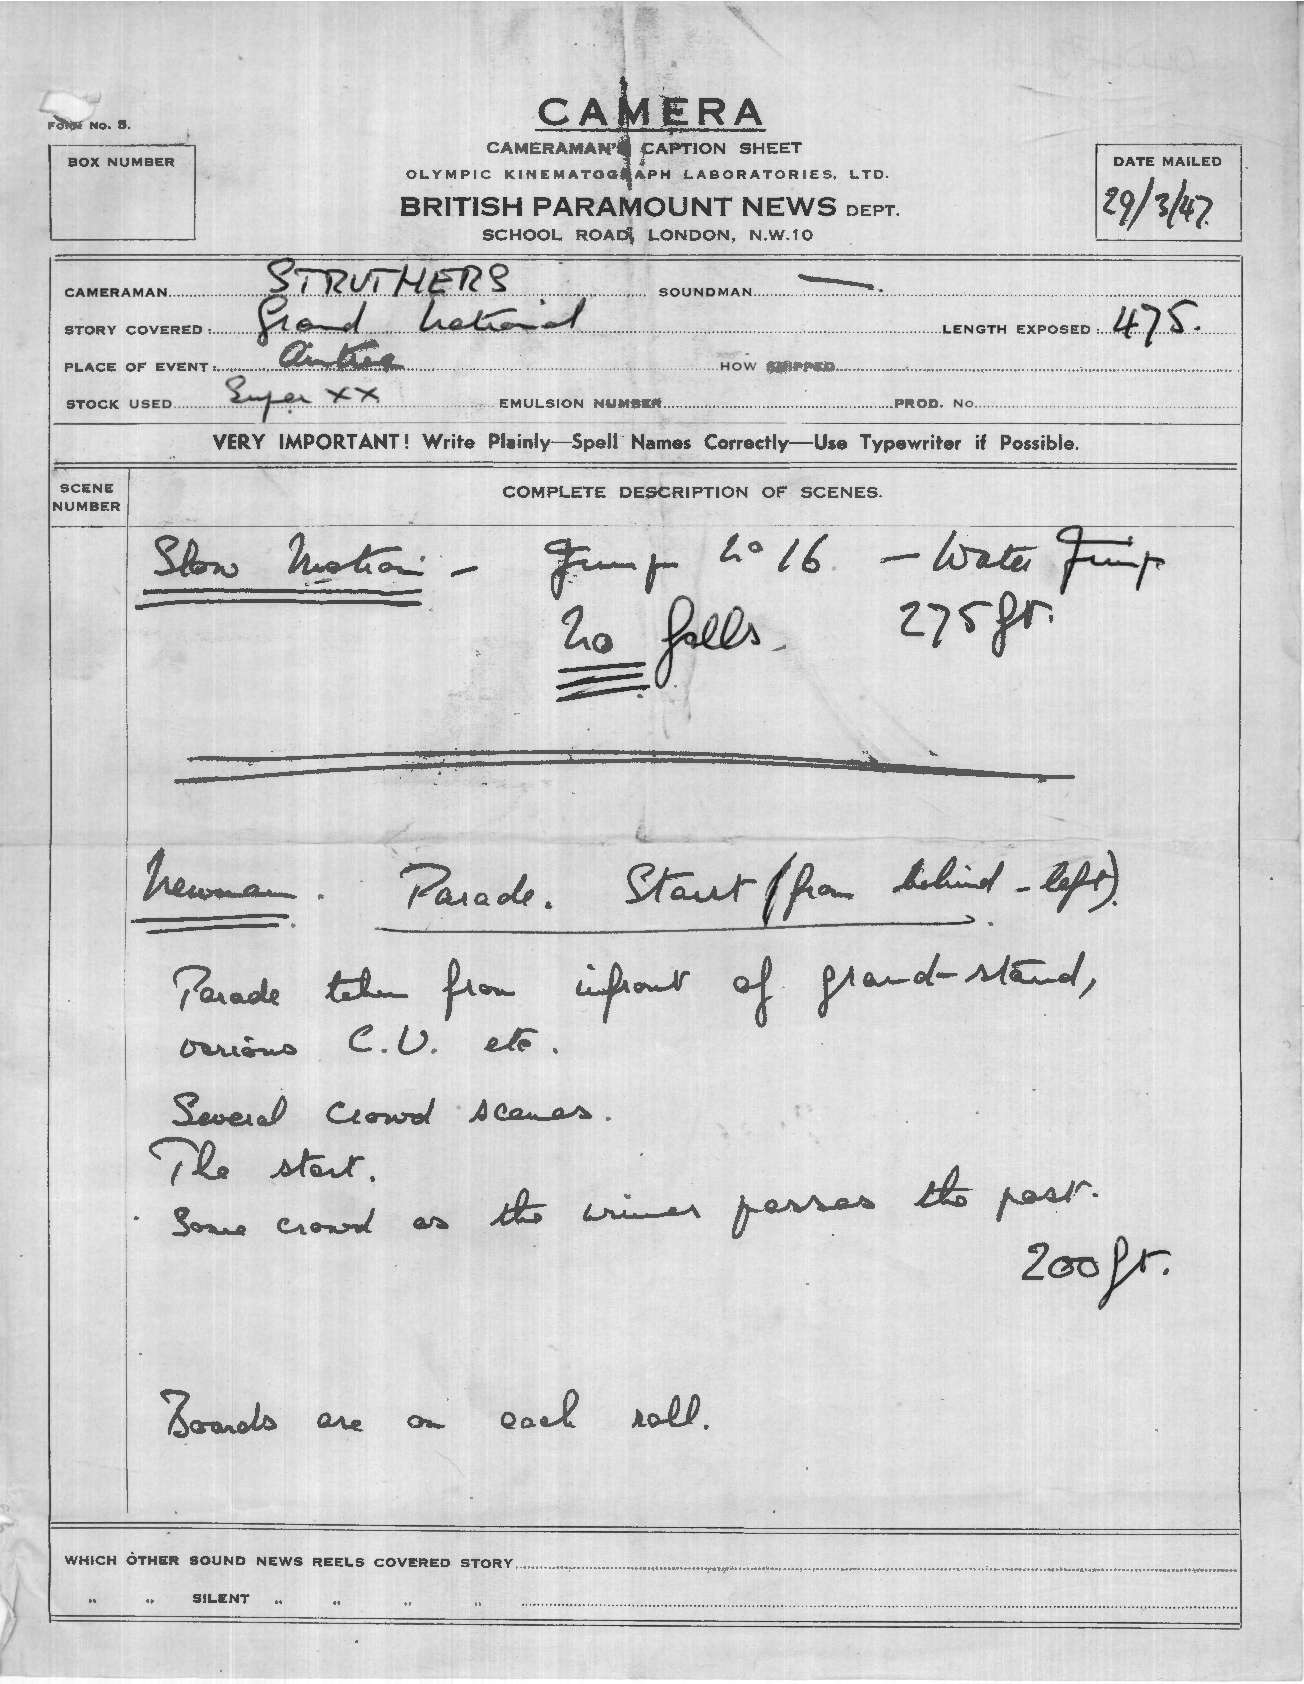 CAMERA
FORM No. 8.
CAMERAMAN'S CAPTION SHEET
BOX NUMBER
DATE MAILED
OLYMPIC KINEMATOGRAPH LABORATORIES, LTD.
29/3/47.
BRITISH PARAMOUNT NEWS DEPT.
SCHOOL ROAD, LONDON, N.W.10
CAMERAMAN STRUTHERS SOUNDMAN —.
STORY COVERED: Grand National LENGTH EXPOSED: 475.
PLACE OF EVENT: Aintree HOW SHIPPED
STOCK USED Super XX EMULSION NUMBER PROD. No.
VERY IMPORTANT! Write Plainly—Spell Names Correctly—Use Typewriter if Possible.
SCENE NUMBER
COMPLETE DESCRIPTION OF SCENES.
Slow Motion - Jump No 16 - Water Jump
No falls. 275 ft.
Newman. Parade. Start (from behind - left).
Parade taken from infront of grand-stand,
various C.U. etc.
Several crowd scenes.
The start.
Some crowd as the winner passes the post.
200 ft.
Boards are on each roll.
WHICH OTHER SOUND NEWS REELS COVERED STORY
" " SILENT " " " "